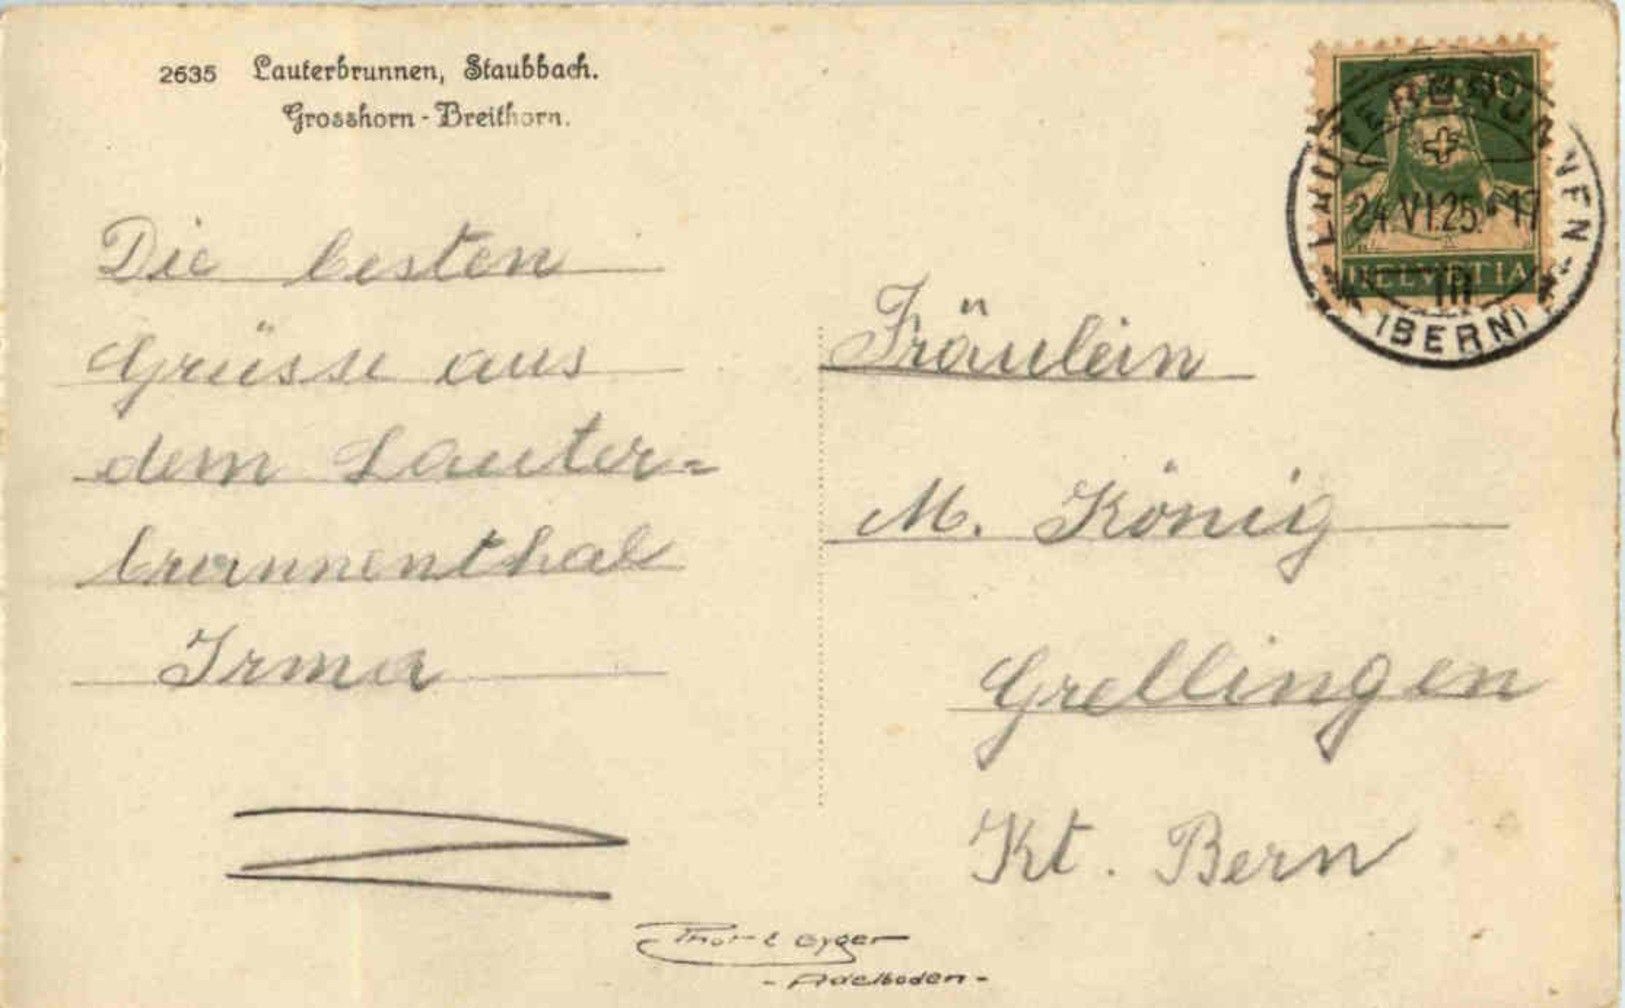 2635 Lauterbrunnen, Staubbach.
Grosshorn - Breithorn.
LAUTERBRUNNEN
24.VI.25.-17
HELVETIA
III
(BERN)
Die besten
Grüsse aus
dem Lauter=
brunnenthal
Irma
Fräulein
M. König
Grellingen
Kt. Bern
Phot Gyger
- Adelboden -